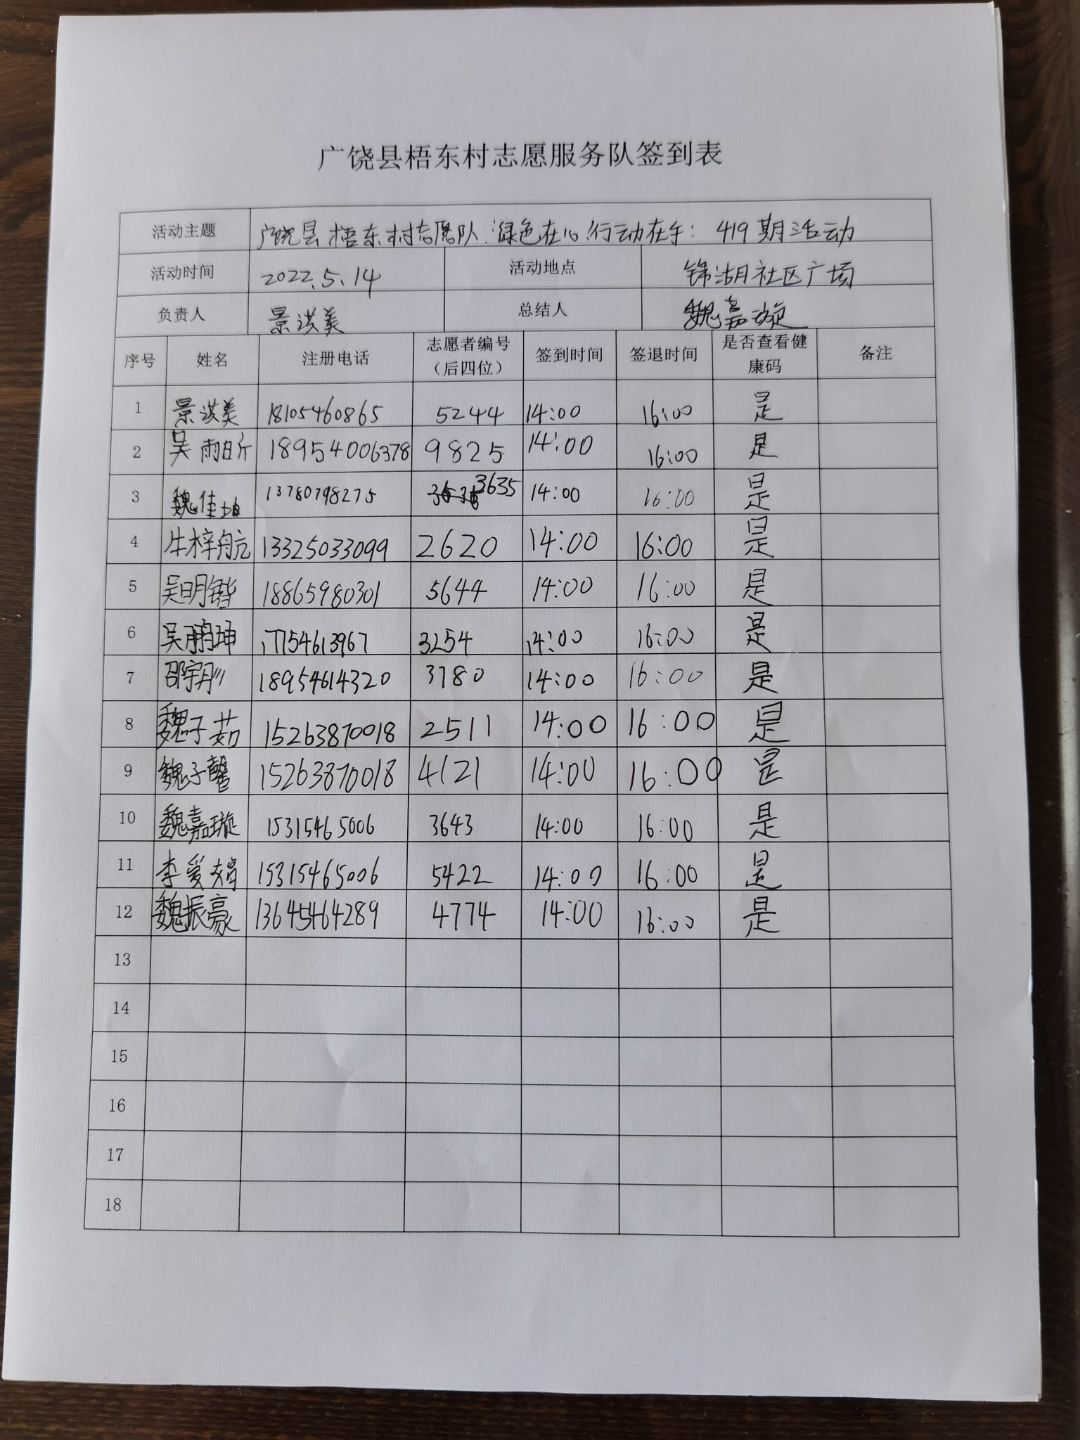 广饶县梧东村志愿服务队签到表
活动主题 广饶县梧东村志愿队:绿色在心行动在手: 419期活动
活动时间 2022.5.14 活动地点 锦湖社区广场
负责人 景洪美 总结人 魏嘉璇
序号 姓名 注册电话 志愿者编号（后四位） 签到时间 签退时间 是否查看健康码 备注
1 景洪美 18105460865 5244 14:00 16:00 是
2 吴雨昕 18954006378 9825 14:00 16:00 是
3 魏佳坤 13780798275 3635 14:00 16:00 是
4 牛梓航 13325033099 2620 14:00 16:00 是
5 吴明锴 18865980301 5644 14:00 16:00 是
6 吴鹏坤 17154613967 3254 14:00 16:00 是
7 邵宇彤 18954614320 3780 14:00 16:00 是
8 魏子茹 15263870018 2511 14:00 16:00 是
9 魏子馨 15263870018 4121 14:00 16:00 是
10 魏嘉璇 15315465006 3643 14:00 16:00 是
11 李爱嫦 15315465006 5422 14:00 16:00 是
12 魏振豪 13645464289 4774 14:00 16:00 是
13
14
15
16
17
18